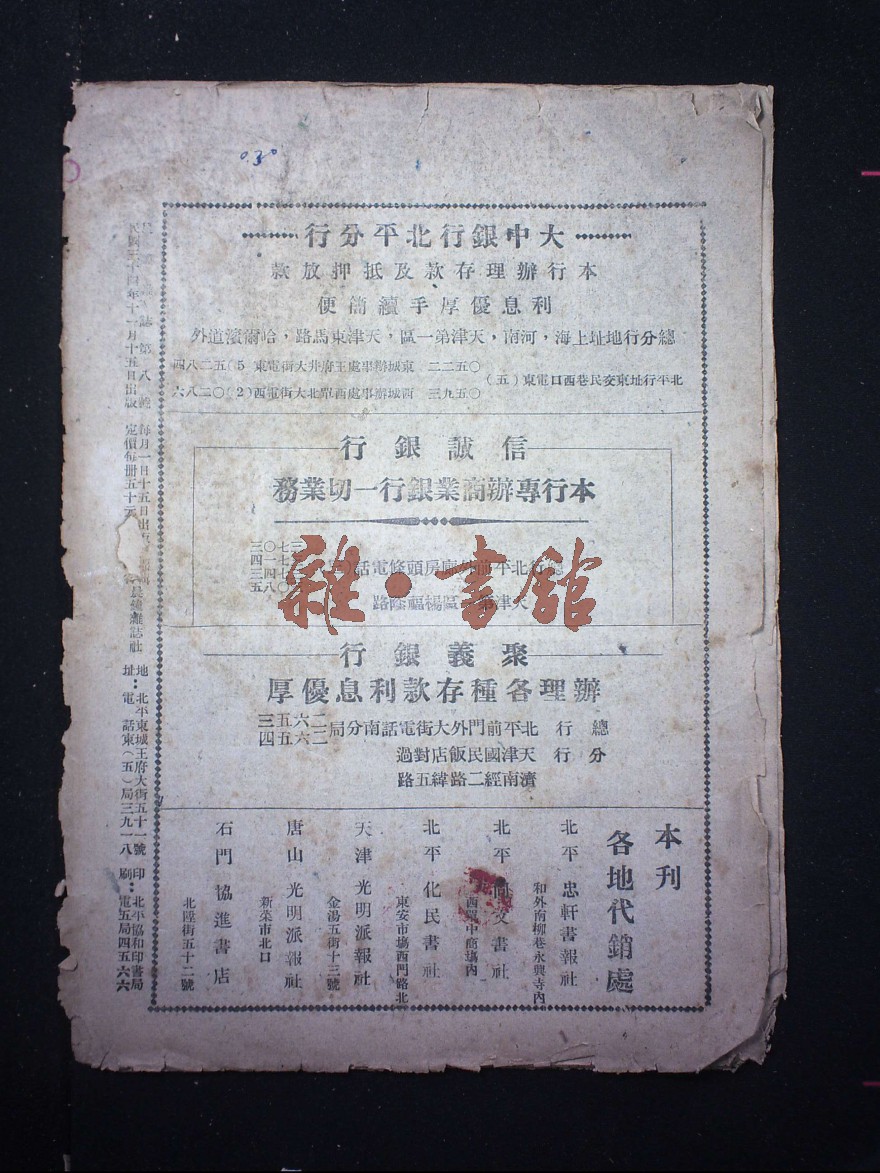 0.30
大中銀行北平分行
本行辦理存款及抵押放款
利息優厚手續簡便
總分行地址上海，河南，天津第一區，天津東馬路，哈爾濱道外
北平行址東交民巷西口電東（五）
〇五二二 東城辦事處王府井大街電東（5）〇五二八四
〇五九三 西城辦事處西單北大街電西（2）〇二八六
信誠銀行
本行專辦商業銀行一切業務
北平前外廊房頭條電話
三七〇三
路隆福楊區
聚義銀行
辦理各種存款利息優厚
總行 北平前門外大街電話南分局 二六五三 二六五四
分行 天津國民飯店對過
濟南經二路緯五路
本刊
各地代銷處
北平 忠軒書報社
和外南柳巷永興寺內
北平 尚文書社
西單中商塲內
北平 化民書社
東安市塲西門路北
天津 光明派報社
金湯五街十三號
唐山 光明派報社
新菜市北口
石門 協進書店
北陞街五十二號
誌第八
每月一日十五日出
長城雜誌社
地址：北平東城王府大街五十一號
印刷：北平協和印書局
年十一月十五日出版
定價每冊五十元
電話東（五）局三九一八
電五局四五六六
雜·書館